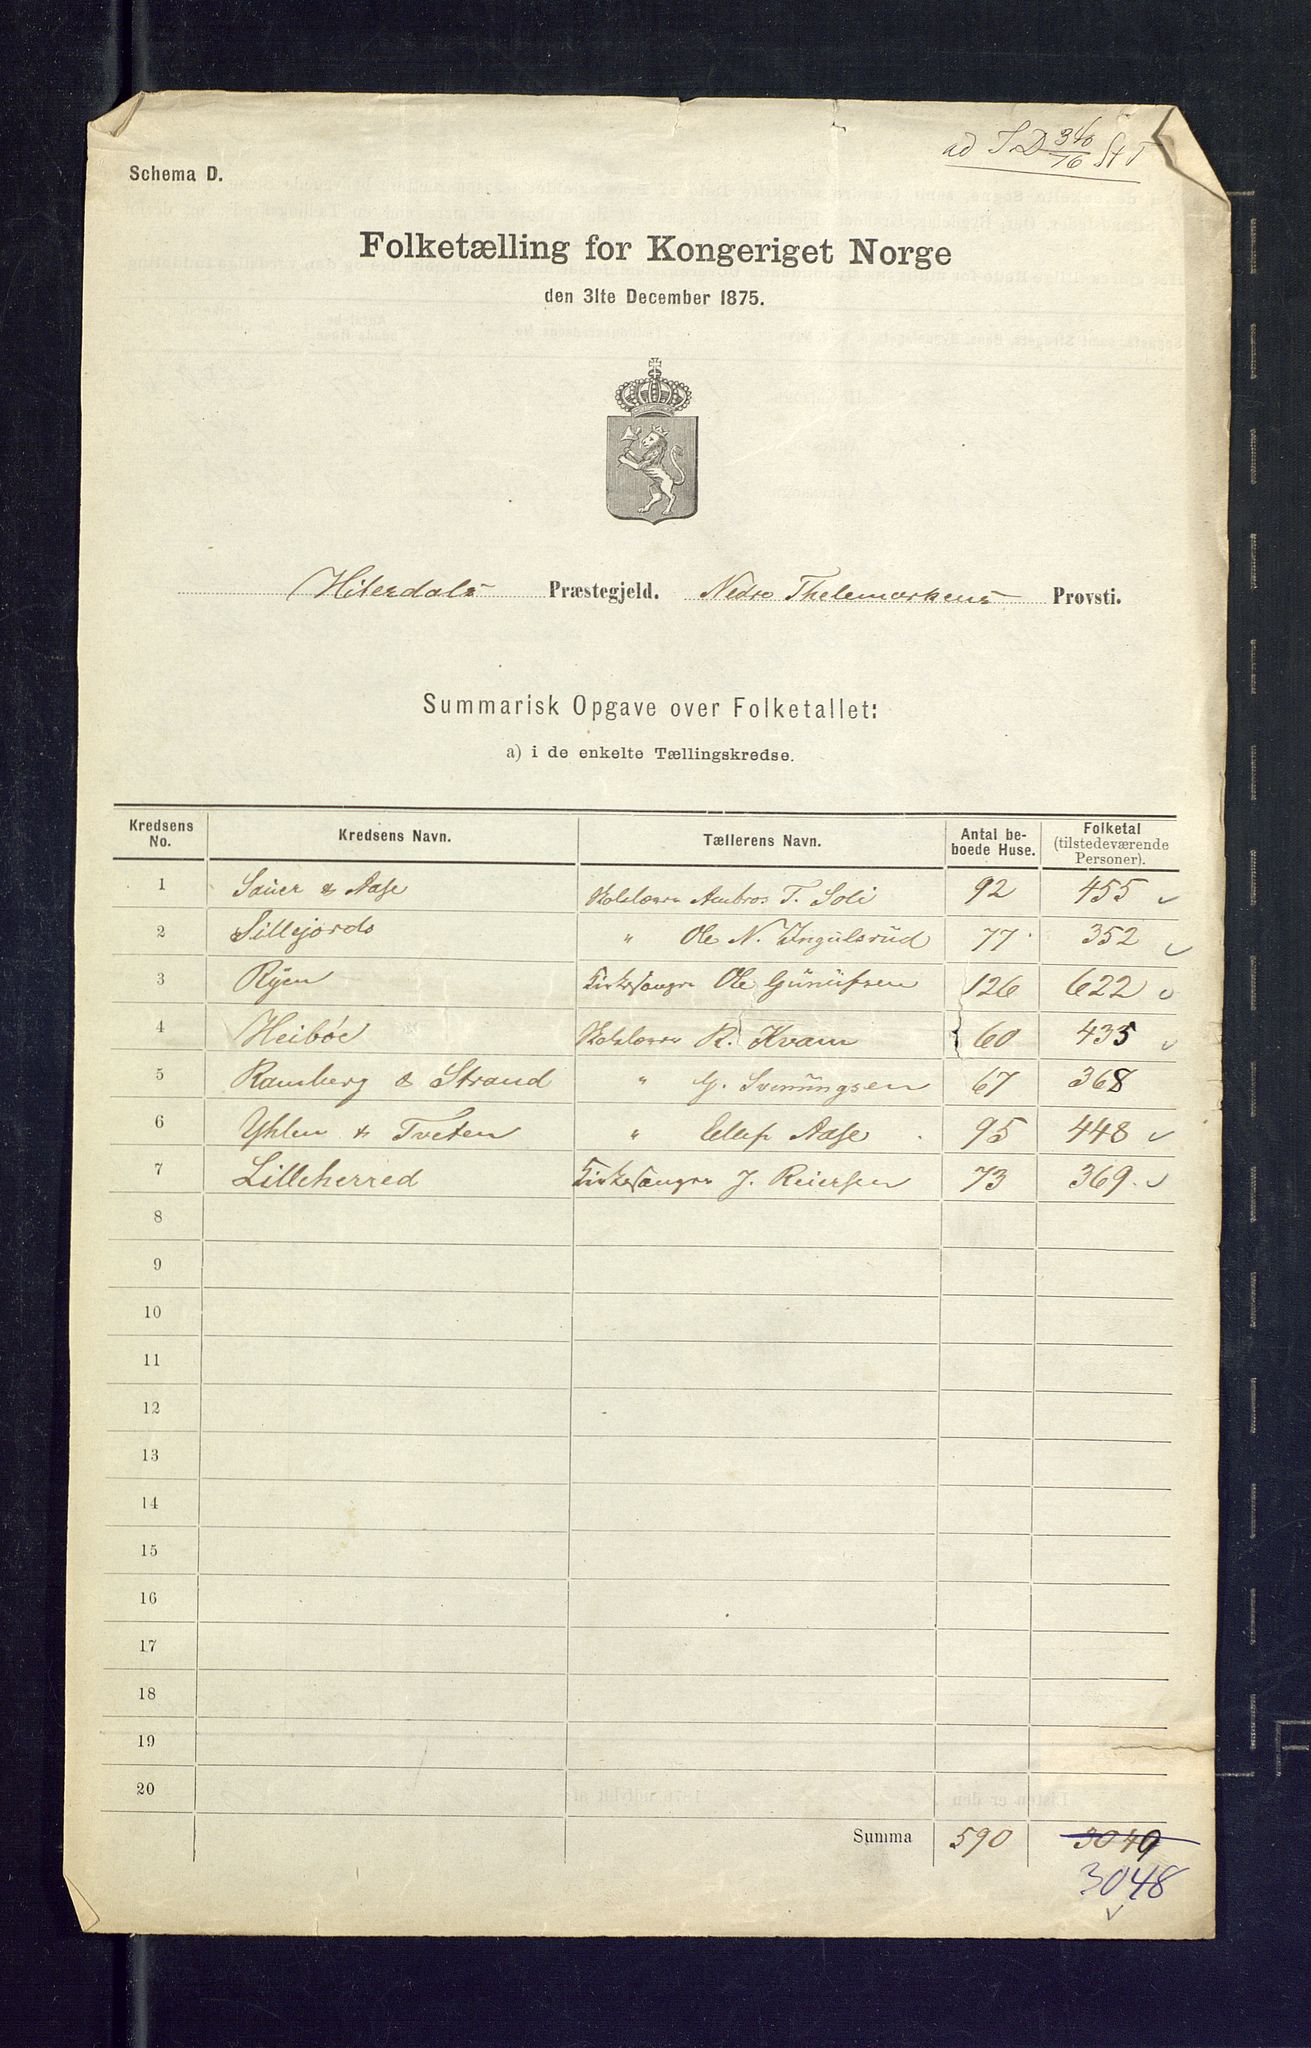 ad S D 340/76 St T
Schema D.
Folketælling for Kongeriget Norge
den 31te December 1875.
Hiterdals Præstegjeld. Nedre Thelemarkens Provsti.
Summarisk Opgave over Folketallet:
a) i de enkelte Tællingskredse.
Kredsens No. Kredsens Navn. Tællerens Navn. Antal beboede Huse. Folketal (tilstedeværende Personer).
1 Sauer & Aase Skolelærer Ambros T. Soli 92 455
2 Lillejords " Ole N. Yngulsrud 77 352
3 Ryen Kirkesanger Ole Gunufsen 126 622
4 Heibøe Skolelærer R. Kvam 60 435
5 Ramberg & Strand " G. Svenungsen 67 368
6 Yhlen & Tveten " Ellef Aase 95 448
7 Lilleherred Kirkesanger J. Reiersen 73 369
8
9
10
11
12
13
14
15
16
17
18
19
20
Summa 590 3049
3048